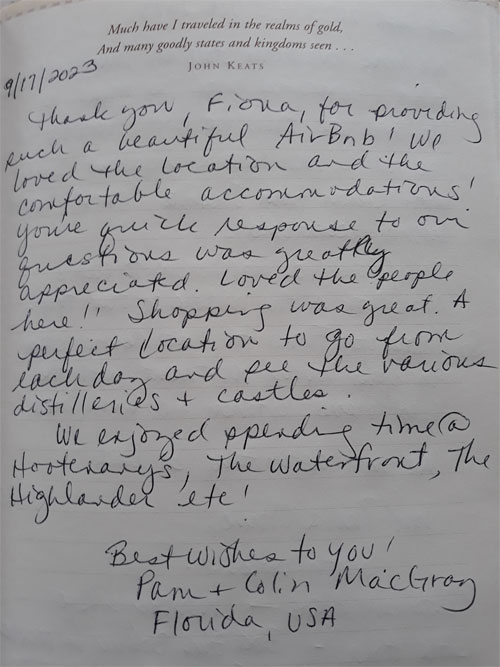 Much have I traveled in the realms of gold,
And many goodly states and kingdoms seen . . .
JOHN KEATS
9/17/2023
Thank you, Fiona, for providing
such a beautiful AirBnb! We
loved the location and the
comfortable accommodations!
you're quick response to our
questions was greatly
appreciated. Loved the people
here!! Shopping was great. A
perfect location to go from
each day and see the various
distilleries + castles.
We enjoyed spending time @
Hootenanys, The Waterfront, The
Highlander etc!
Best wishes to you!
Pam + Colin MacGray
Florida, USA